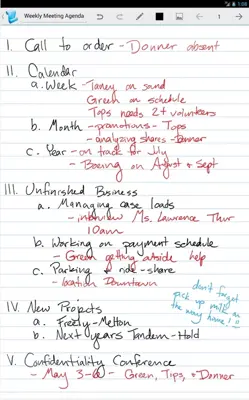 Weekly Meeting Agenda
1
I. Call to order - Donner absent
II. Calendar
a. Week - Taney on sand
Green on schedule
Tops needs 2+ volunteers
b. Month - promotions - Tops
- analyzing shares - Donner
c. Year - on track for July
- Boeing on August & Sept
III. Unfinished Business
a. Managing case loads
- interview Ms. Lawrence Thur
10am
b. Working on payment schedule
- Green getting outside help
c. Parking & ride-share
- location Downtown
don't forget
pick up milk on
the way home!!!
IV. New Projects
a. Freely - Melton
b. Next years Tandem - Hold
V. Confidentiality Conference
- May 3-6 - Green, Tips, & Donner